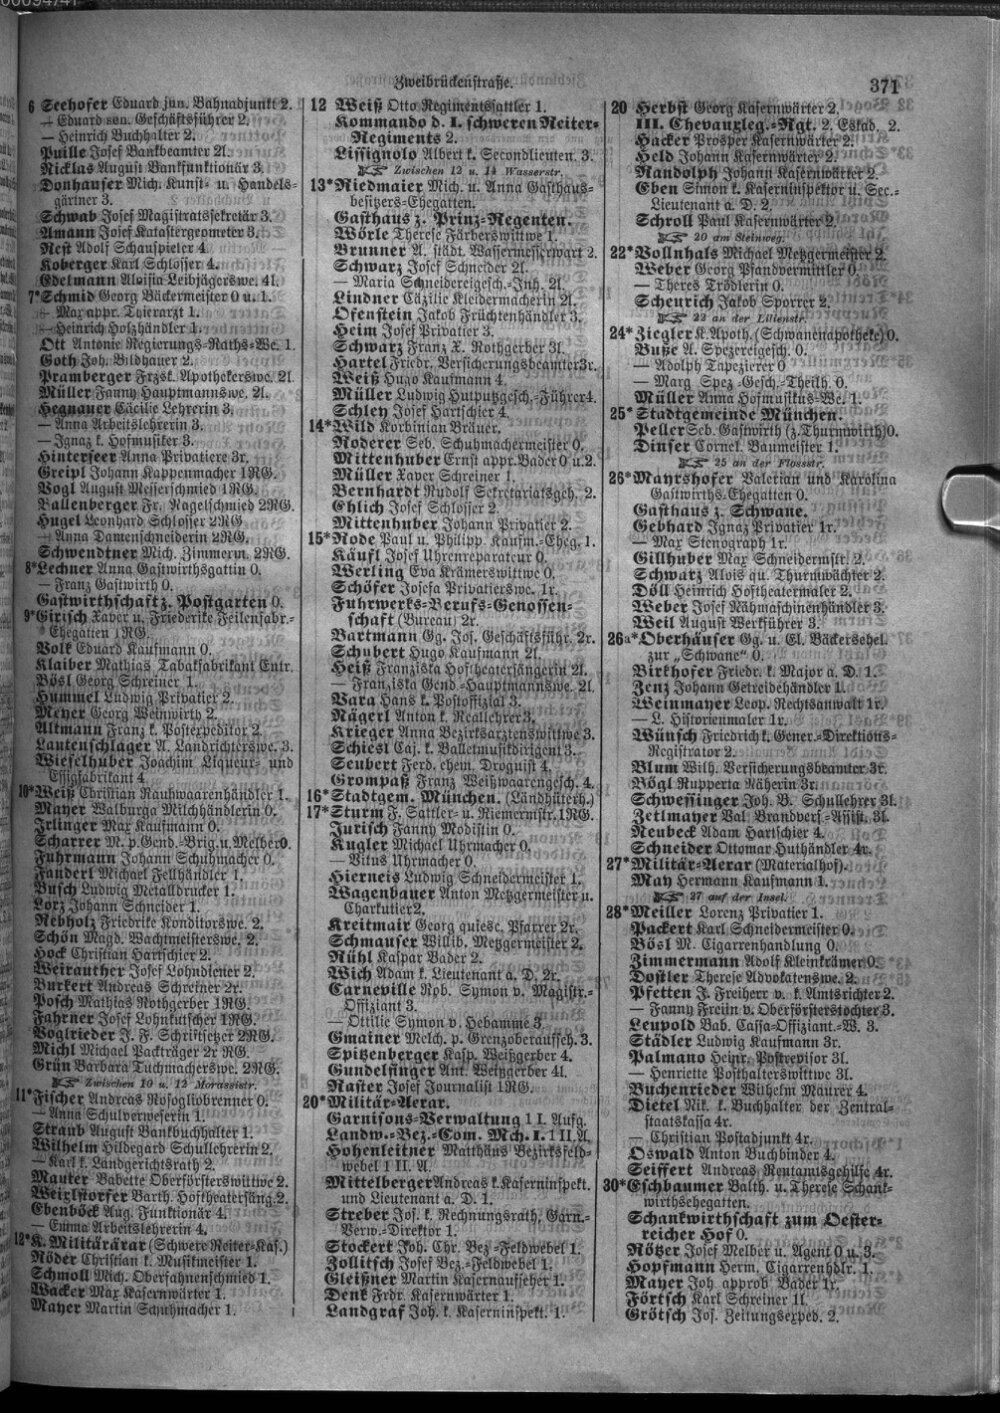 Zweibrückenstraße.
371
6 Seehofer Eduard jun. Bahnadjunkt 2.
— Eduard sen. Geschäftsführer 2.
— Heinrich Buchhalter 2.
Puille Josef Bankbeamter 2l.
Nicklas August Bankfunktionär 3.
Donhauser Mich. Kunst- u. Handels-
gärtner 3.
Schwab Josef Magistratssekretär 3.
Amann Josef Katastergeometer 3.
Rest Adolf Schauspieler 4.
Koberger Karl Schlosser 4.
Edelmann Aloisia Leibjägerswe. 4l.
7*Schmid Georg Bäckermeister 0 u. 1.
— Max appr. Thierarzt 1.
— Heinrich Holzhändler 1.
Ott Antonie Regierungs-Raths-We. 1.
Goth Joh. Bildhauer 2.
Pramberger Frzsk. Apothekerswe. 2l.
Müller Fanny Hauptmannswe. 2l.
Hegnauer Cäcilie Lehrerin 3.
— Anna Arbeitslehrerin 3.
— Ignaz k. Hofmusiker 3.
Hinterseer Anna Privatiere 3r.
Greipl Johann Kappenmacher 1RG.
Vogl August Messerschmied 1RG.
Dallenberger Fr. Nagelschmied 2RG.
Hugel Leonhard Schlosser 2RG.
— Anna Damenschneiderin 2RG.
Schwendtner Mich. Zimmerm. 2RG.
8*Lechner Anna Gastwirthsgattin 0.
— Franz Gastwirth 0.
Gastwirthschaft z. Postgarten 0.
9*Girisch Xaver u. Friederike Feilenfabr.-
Ehegatten 1RG.
Volk Eduard Kaufmann 0.
Klaiber Mathias Tabakfabrikant Entr.
Bösl Georg Schreiner 1.
Hummel Ludwig Privatier 2.
Meyer Georg Weinwirth 2.
Altmann Franz k. Posterpeditor 2.
Lautenschlager A. Landrichterswe. 3.
Wieselhuber Joachim Liqueur- und
Essigfabrikant 4.
10*Weiß Christian Rauhwaarenhändler 1.
Mayer Walburga Milchhändlerin 0.
Irlinger Max Kaufmann 0.
Scharrer M. p. Gend.-Brig. u. Melber 0.
Fuhrmann Johann Schuhmacher 0.
Fanderl Michael Fellhändler 1.
Busch Ludwig Metalldrucker 1.
Lorz Johann Schneider 1.
Rebholz Friedrike Konditorswe. 2.
Schön Magd. Wachtmeisterswe. 2.
Hock Christian Hartschier 2.
Weirauther Josef Lohndiener 2.
Burkert Andreas Schreiner 2r.
Posch Mathias Rothgerber 1RG.
Fahrner Josef Lohnkutscher 1RG.
Voglrieder J. F. Schriftsetzer 2RG.
Michl Michael Packträger 2r RG.
Grün Barbara Tuchmacherswe. 2RG.
☞ Zwischen 10 u. 12 Morassistr.
11*Fischer Andreas Rosogliobrenner 0.
— Anna Schulverweserin 1.
Straub August Bankbuchhalter 1.
Wilhelm Hildegard Schullehrerin 2.
— Karl k. Landgerichtsrath 2.
Mauter Babette Oberförsterswittwe 2.
Weixlstorfer Barth. Hoftheatersäng. 2.
Ebenböck Aug. Funktionär 4.
— Emma Arbeitslehrerin 4.
12*K. Militärärar (Schwere Reiter-Kas.)
Röder Christian k. Musikmeister 1.
Schmoll Mich. Oberfahnenschmied 1.
Wacker Max Kasernwärter 1.
Mayer Martin Schuhmacher 1.
12 Weiß Otto Regimentssattler 1.
Kommando d. I. schweren Reiter-
Regiments 2.
Lissignolo Albert k. Secondlieuten. 3.
☞ Zwischen 12 u. 14 Wasserstr.
13*Riedmaier Mich. u. Anna Gasthaus-
besitzers-Ehegatten.
Gasthaus z. Prinz-Regenten.
Wörle Therese Färberswittwe 1.
Brunner A. städt. Wassermesserwart 2.
Schwarz Josef Schneider 2l.
— Maria Schneidereigesch.-Inh. 2l.
Lindner Cäzilie Kleidermacherin 2l.
Ofenstein Jakob Früchtenhändler 3.
Heim Josef Privatier 3.
Schwarz Franz X. Rothgerber 3l.
Hartel Friedr. Versicherungsbeamter 3r.
Weiß Hugo Kaufmann 4.
Müller Ludwig Hutputzgesch.-Führer 4.
Schley Josef Hartschier 4.
14*Wild Korbinian Bräuer.
Roderer Seb. Schuhmachermeister 0.
Mittenhuber Ernst appr. Bader 0 u. 2.
Müller Xaver Schreiner 1.
Bernhardt Rudolf Sekretariatsgeh. 2.
Ehlich Josef Schlosser 2.
Mittenhuber Johann Privatier 2.
15*Rode Paul u. Philipp. Kaufm.-Eheg. 1.
Käufl Josef Uhrenreparateur 0.
Werling Eva Krämerswittwe 0.
Schöfer Josefa Privatierswe. 1r.
Fuhrwerks-Berufs-Genossen-
schaft (Bureau) 2r.
Bartmann Gg. Jos. Geschäftsführ. 2r.
Schubert Hugo Kaufmann 2l.
Heiß Franziska Hoftheatersängerin 2l.
— Franziska Gend.-Hauptmannswe. 2l.
Vara Hans k. Postoffizial 3.
Nägerl Anton k. Reallehrer 3.
Krieger Anna Bezirksarztenswittwe 3.
Schiesl Caj. k. Balletmusikdirigent 3.
Seubert Ferd. chem. Droguist 4.
Grompaß Franz Weißwaarengesch. 4.
16*Stadtgem. München. (Landhüterh.)
17*Sturm F. Sattler- u. Riemermstr. 1RG.
Jurisch Fanny Modistin 0.
Kugler Michael Uhrmacher 0.
— Vitus Uhrmacher 0.
Hierneis Ludwig Schneidermeister 1.
Wagenbauer Anton Metzgermeister u.
Charkutier 2.
Kreitmair Georg quiesc. Pfarrer 2r.
Schmauser Willib. Metzgermeister 2.
Rühl Kaspar Bader 2.
Wich Adam k. Lieutenant a. D. 2r.
Carneville Rpb. Symon v. Magistr.-
Offiziant 3.
— Ottilie Symon v. Hebamme 3.
Gmainer Melch. p. Grenzoberaufseh. 3.
Spitzenberger Kasp. Weißgerber 4.
Gundelfinger Ant. Weißgerber 4l.
Raster Josef Journalist 1RG.
20*Militär-Aerar.
Garnisons-Verwaltung 1 I. Aufg.
Landw.-Bez.-Com. Mch. I. 1 II. A.
Hohenleitner Matthäus Bezirksfeld-
webel 1 II. A.
Mittelberger Andreas k. Kaserninspekt.
und Lieutenant a. D. 1.
Streber Jos. k. Rechnungsrath, Garn.-
Verw.-Direktor 1.
Stockert Joh. Chr. Bez.-Feldwebel 1.
Zollitsch Josef Bez.-Feldwebel 1.
Gleißner Martin Kasernaufseher 1.
Denk Frdr. Kasernwärter 1.
Landgraf Joh. k. Kaserninspekt. 1.
20 Herbst Georg Kasernwärter 2.
III. Chevauxleg.-Rgt. 2. Eskad. 2.
Hacker Prosper Kasernwärter 2.
Held Johann Kasernwärter 2.
Randolph Johann Kasernwärter 2.
Eben Simon k. Kaserninspektor u. Sec.-
Lieutenant a. D. 2.
Schroll Paul Kasernwärter 2.
☞ 20 am Steinweg.
22*Vollnhals Michael Metzgermeister 2.
Weber Georg Pfandvermittler 0.
— Theres Trödlerin 0.
Scheurich Jakob Sporrer 2.
☞ 22 an der Lilienstr.
24*Ziegler K. Apoth. (Schwanenapotheke) 0.
Butze A. Spezereigesch. 0.
— Adolph Tapezierer 0
— Marg. Spez.-Gesch.-Theilh. 0.
Müller Anna Hofmusikus-We. 1.
25*Stadtgemeinde München.
Peller Seb. Gastwirth (z. Thurmwirth) 0.
Dinser Cornel. Baumeister 1.
☞ 25 an der Flosstr.
26*Mayrshofer Valerian und Karolina
Gastwirths-Ehegatten 0.
Gasthaus z. Schwane.
Gebhard Ignaz Privatier 1r.
— Max Stenograph 1r.
Gillhuber Max Schneidermstr. 2.
Schwarz Alois qu. Thurmwächter 2.
Döll Heinrich Hoftheatermaler 2.
Weber Josef Nähmaschinenhändler 3.
Weil August Werkführer 3.
26a*Oberhäuser Gg. u. El. Bäckersehel.
zur „Schwane“ 0.
Birkhofer Friedr. k. Major a. D. 1.
Zenz Johann Getreidehändler 1.
Weinmayer Leop. Rechtsanwalt 1r.
— L. Historienmaler 1r.
Wünsch Friedrich k. Gener.-Direktions-
Registrator 2.
Blum Wilh. Versicherungsbeamter 3r.
Bögl Rupperta Näherin 3r.
Schwessinger Joh. B. Schullehrer 3l.
Zetlmayer Val. Brandvers.-Assist. 3l.
Neubeck Adam Hartschier 4.
Schneider Ottomar Huthändler 4r.
27*Militär-Aerar (Materialhof).
May Hermann Kaufmann 1.
☞ 27 auf der Insel.
28*Meiller Lorenz Privatier 1.
Packert Karl Schneidermeister 0.
Bösl M. Cigarrenhandlung 0.
Zimmermann Adolf Kleinkrämer 0.
Dostler Therese Advokatenswe. 2.
Pfetten F. Freiherr v. k. Amtsrichter 2.
— Fanny Freiin v. Oberförsterstochter 3.
Leupold Bab. Cassa-Offiziant.-W. 3.
Städler Ludwig Kaufmann 3r.
Palmano Heinr. Postrevisor 3l.
— Henriette Posthalterswittwe 3l.
Buchenrieder Wilhelm Maurer 4.
Dietel Nik. k. Buchhalter der Zentral-
staatskassa 4r.
— Christian Postadjunkt 4r.
Oswald Anton Buchbinder 4.
Seiffert Andreas Rentamtsgehilfe 4r.
30*Eschbaumer Balth. u. Therese Schank-
wirthsehegatten.
Schankwirthschaft zum Oester-
reicher Hof 0.
Rötzer Josef Melber u. Agent 0 u. 3.
Hopfmann Herm. Cigarrenhdlr. 1.
Mayer Joh. approb. Bader 1r.
Förtsch Karl Schreiner 1l.
Grötsch Jos. Zeitungsexped. 2.